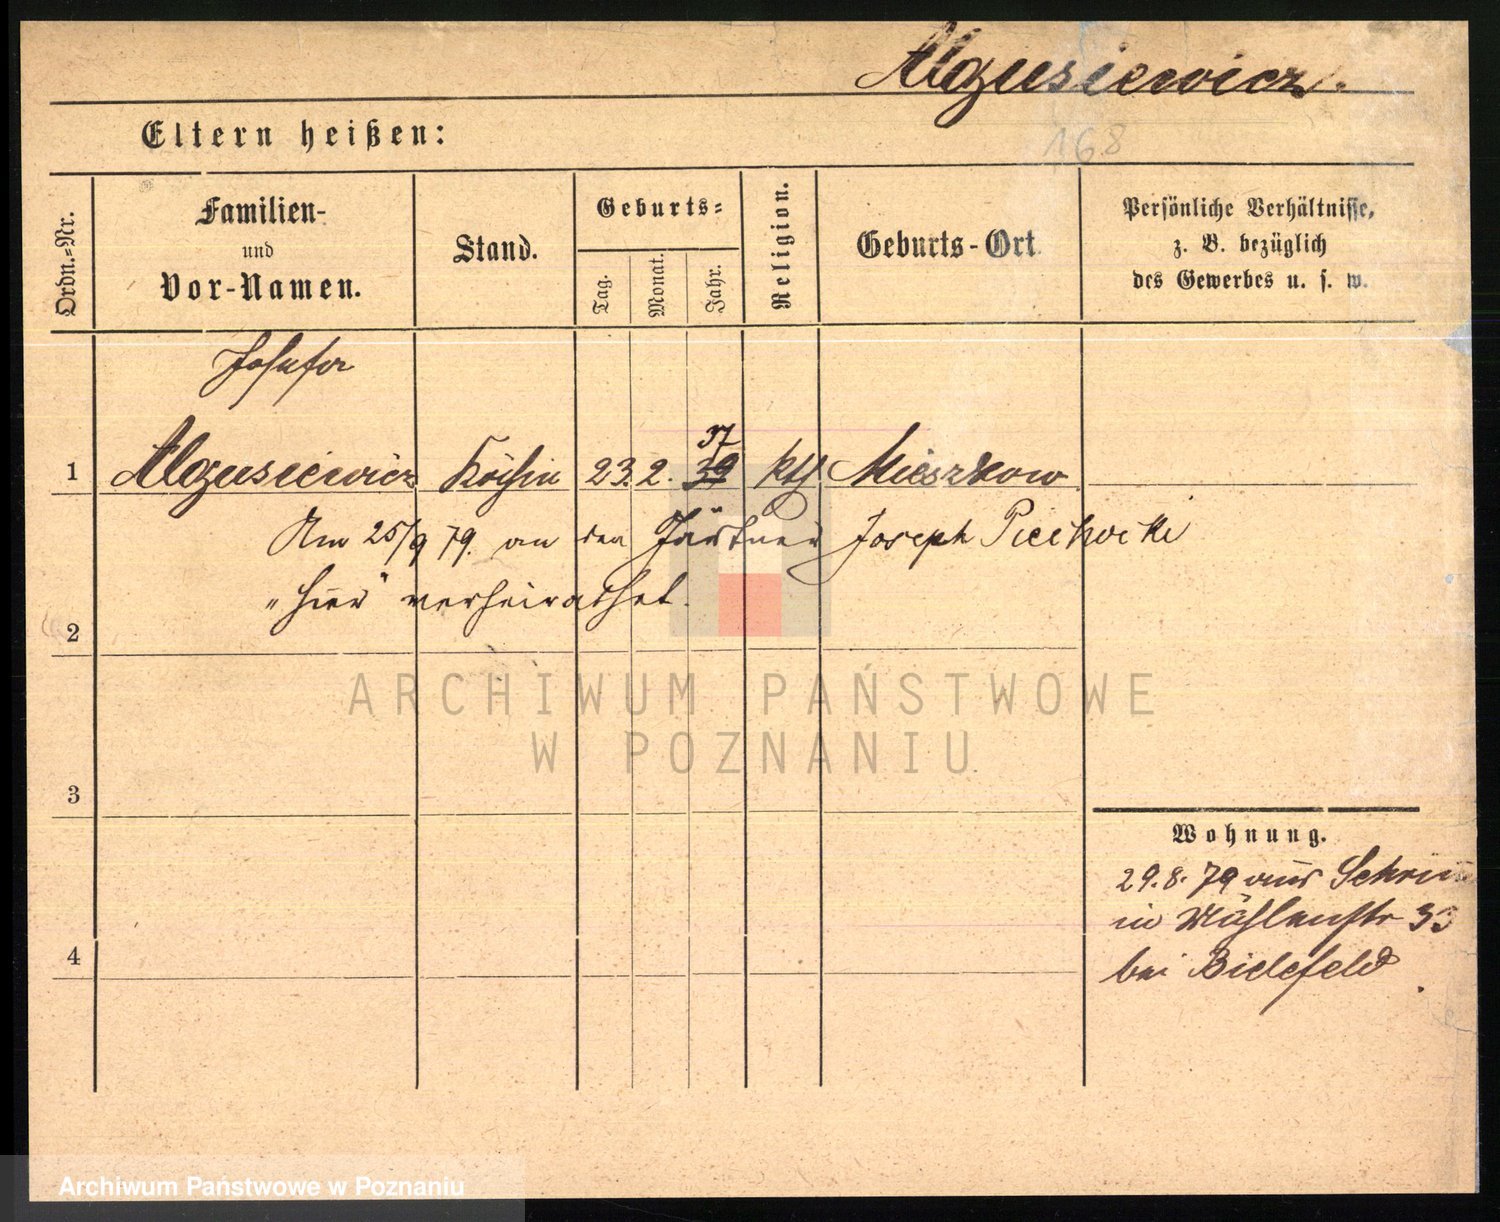 Algusiewicz.
168
Eltern heißen:
Ordn.=Nr.
Familien-
und
Vor-Namen.
Stand.
Geburts=
Tag.
Monat.
Jahr.
Religion.
Geburts-Ort.
Persönliche Verhältnisse,
z. B. bezüglich
des Gewerbes u. s. w.
Josefa
37
1 Algusiewicz Köchin 23. 2. 39 kth Mieszkow.
Am 25/9 79. an den Gärtner Joseph Piechocki
„hier" verheirathet.
2
ARCHIWUM PAŃSTWOWE
W POZNANIU
3
Wohnung.
29.8.79 aus Schrimm
in Mühlenstr 33
bei Bielefeld
4
Archiwum Państwowe w Poznaniu